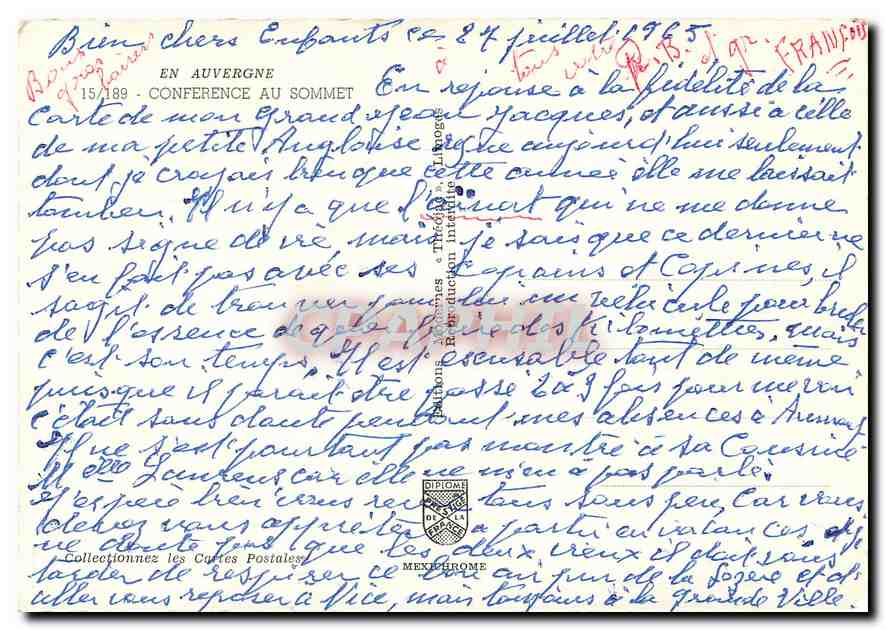 Bien chers Enfants ce 27 juillet 1965
Bons gros baisers à tous votre P. B. d gr. FRANÇOIS
EN AUVERGNE
15/189 - CONFERENCE AU SOMMET
En réponse à la fidélité de la
Carte de mon grand Jean Jacques, et aussi à celle
de ma petite Angloise aujourd'hui seulement
dont je croyais bien que cette année elle me laissait
tomber. Il n'y a que l' qui ne me donne
pas signe de vie mais je sais que ce dernier ne
s'en fait pas avec ses Copains et Copines, il
sagit de trouver pour lui un véhicule pour bruler
de l'essence et faire des kilomettres, mais
c'est son temps. Il est excusable tout de même
puisque il parait être passé 2 à 3 fois pour me voir
c'était sans doute pendant mes absences à
Il ne s'est pourtant pas montré à sa Cousine
Melle Laurens car elle ne m'en a pas parlé.
J'espère bien vous revoir tous sous peu, Car vous
devez vous apprêter à partir en vacances, et je
ne doute pas que les deux vieux il doit sans
tarder de respirer ce bon air pur de la Lozère et d'
aller vous reposer à Nice, mais toujours à la grande Ville.
Editions Modernes « Théojac », Limoges
Reproduction interdite
DIPLOME
PRESTIGE
DE LA
FRANCE
Collectionnez les Cartes Postales
MEXICHROME